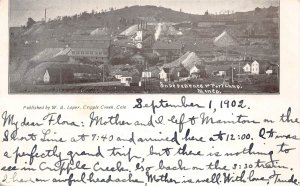 Independence & Portland,
Mines.
Published by W. A. Loper, Cripple Creek, Colo
September 1, 1902.
My dear Flora: Mother and I left Manitou on the
Short Line at 9:40 and arrived here at 12:00. It was
a perfectly grand trip, but there is nothing to
see in Cripple Creek. Go back on the 3:30 train.
I have an awful headache. Mother is well. With love,